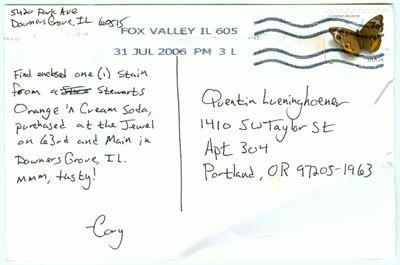 5420 Park Ave
Downers Grove, IL 60515
FOX VALLEY IL 605
31 JUL 2006 PM 3 L
Find enclosed one (1) stain
from a Stewarts
Orange 'n Cream Soda,
purchased at the Jewel
on 63rd and Main in
Downers Grove, IL.
mmm, tasty!
-Cory
Quentin Lueninghoener
1410 SW Taylor St
Apt 304
Portland, OR 97205-1963